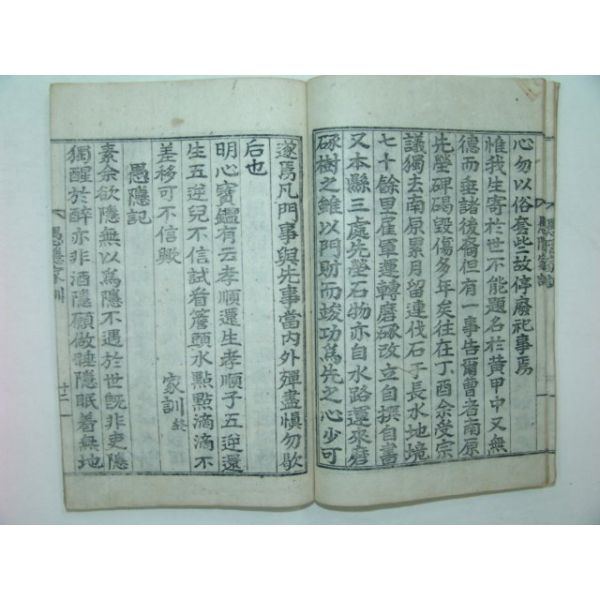 心勿以俗套些故停廢祀事焉
惟我生寄於世不能題名於黃甲中又無
德而垂諸後裔但有一事告爾曹者南原
先塋碑碣毀傷多年矣往在丁酉余受宗
議獨去南原累月留連伐石于長水地境
七十餘里雇軍運轉磨琢改立自撰自書
又本縣三處先塋石物亦自水路還來磨
琢樹之雖以門財而竣功爲先之心少可
遂焉凡門事與先事當內外殫盡愼勿歇
后也
明心寶鑑有云孝順還生孝順子五逆還
生五逆兒不信試看簷頭水點點滴滴不
差移可不信歟
家訓終
愚隱記
素余欲隱無以爲隱不遇於世旣非吏隱
獨醒於醉亦非酒隱願做睡隱眠着無地
愚隱家訓
十二